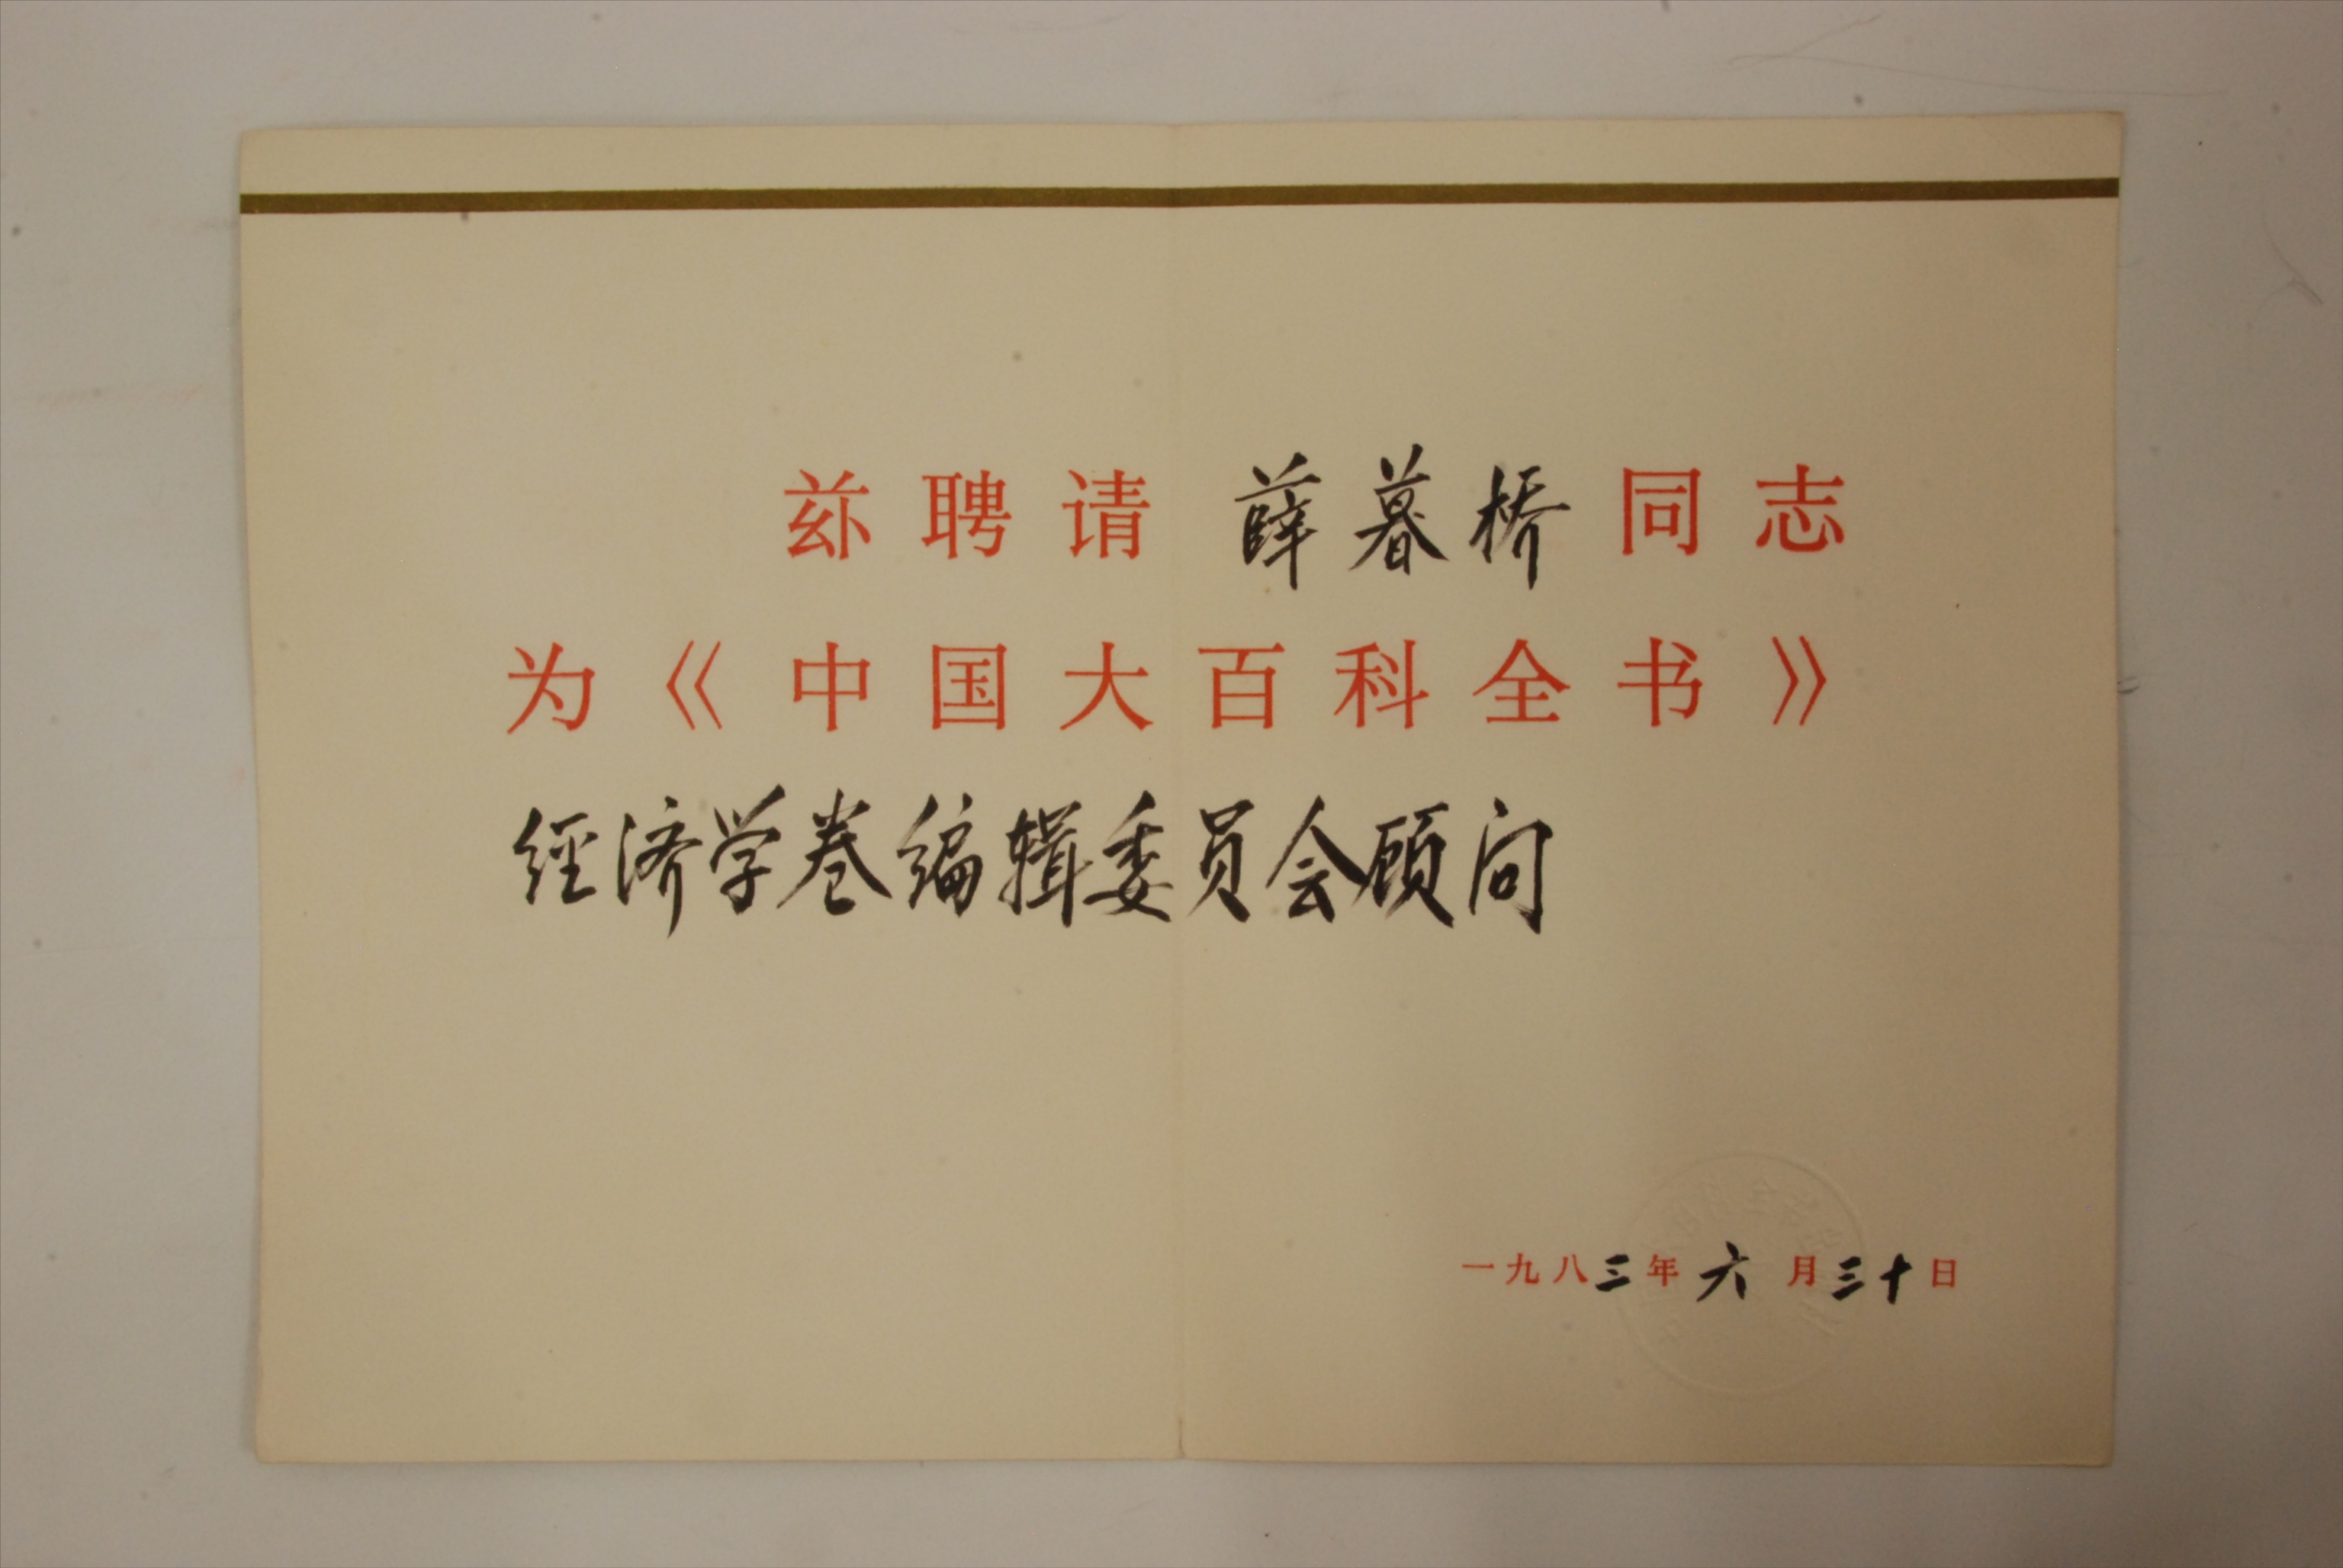 兹聘请 薛暮桥同志
为《中国大百科全书》
经济学卷编辑委员会顾问
一九八三年六月三十日